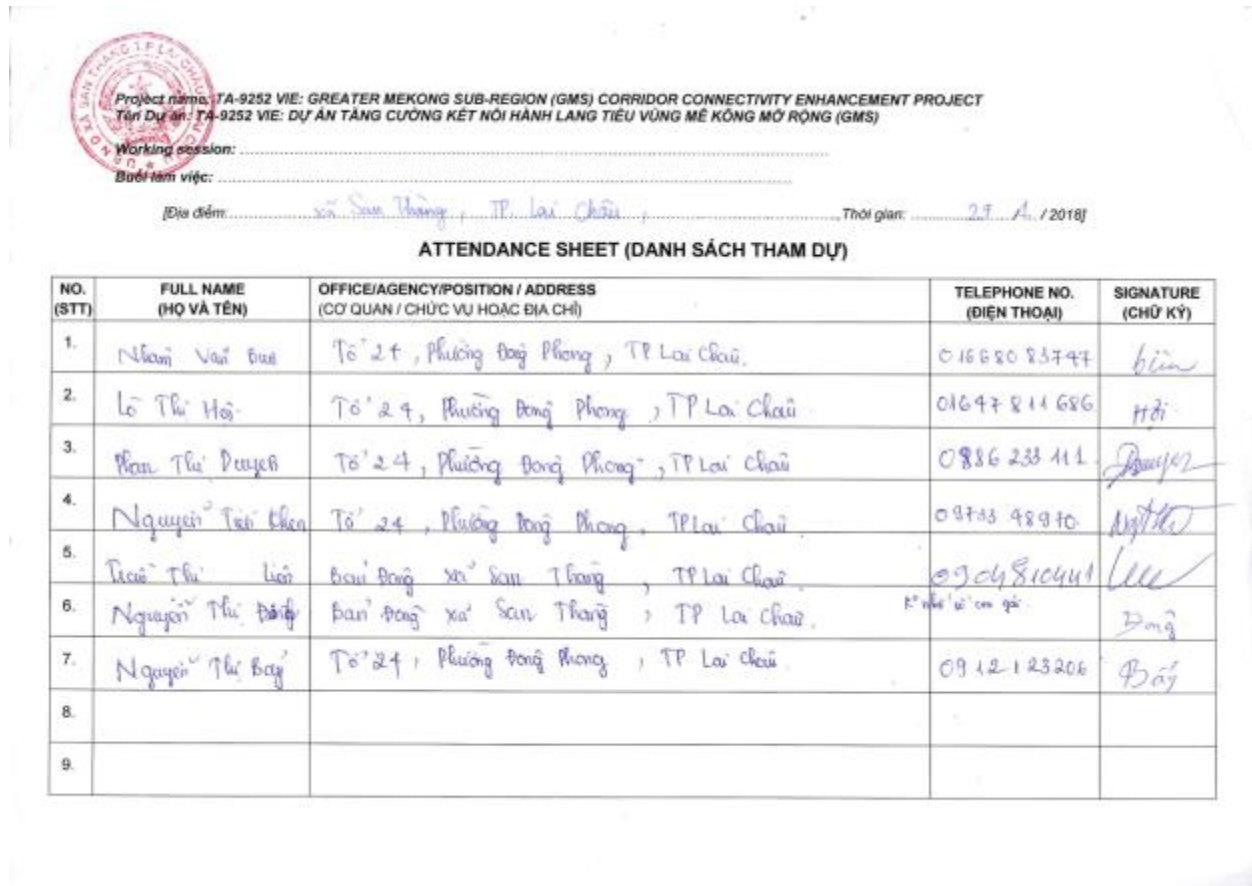 U.B.N.D XÃ SAN THÀNG T.P LAI CHÂU
Project name: TA-9252 VIE: GREATER MEKONG SUB-REGION (GMS) CORRIDOR CONNECTIVITY ENHANCEMENT PROJECT
Tên Dự án: TA-9252 VIE: DỰ ÁN TĂNG CƯỜNG KẾT NỐI HÀNH LANG TIỂU VÙNG MÊ KÔNG MỞ RỘNG (GMS)
Working session:
Buổi làm việc:
[Địa điểm: xã San Thàng, TP. Lai Châu, Thời gian: / 2018]
ATTENDANCE SHEET (DANH SÁCH THAM DỰ)
NO. (STT) FULL NAME (HỌ VÀ TÊN) OFFICE/AGENCY/POSITION / ADDRESS (CƠ QUAN / CHỨC VỤ HOẶC ĐỊA CHỈ) TELEPHONE NO. (ĐIỆN THOẠI) SIGNATURE (CHỮ KÝ)
1. Văn Tổ 24, Phường Đông Phong, TP Lai Châu. 016680 83747
2. Lò Thị Hới Tổ 24, Phường Đông Phong, TP Lai Châu 01647 811 686 Hới
3. Phan Thị Duyên Tổ 24, Phường Đông Phong, TP Lai Châu 0886 233 111 Duyên
4. Nguyễn Tiến Tổ 24, Phường Đông Phong, TP Lai Châu 09733 48970
5. Thị Liên Bản Đông xã San Thàng, TP Lai Châu 0904810441
6. Nguyễn Thị Đông Bản Đông xã San Thàng, TP Lai Châu. Đông
7. Nguyễn Thị Bảy Tổ 24, Phường Đông Phong, TP Lai Châu 0912123206 Bảy
8.
9.